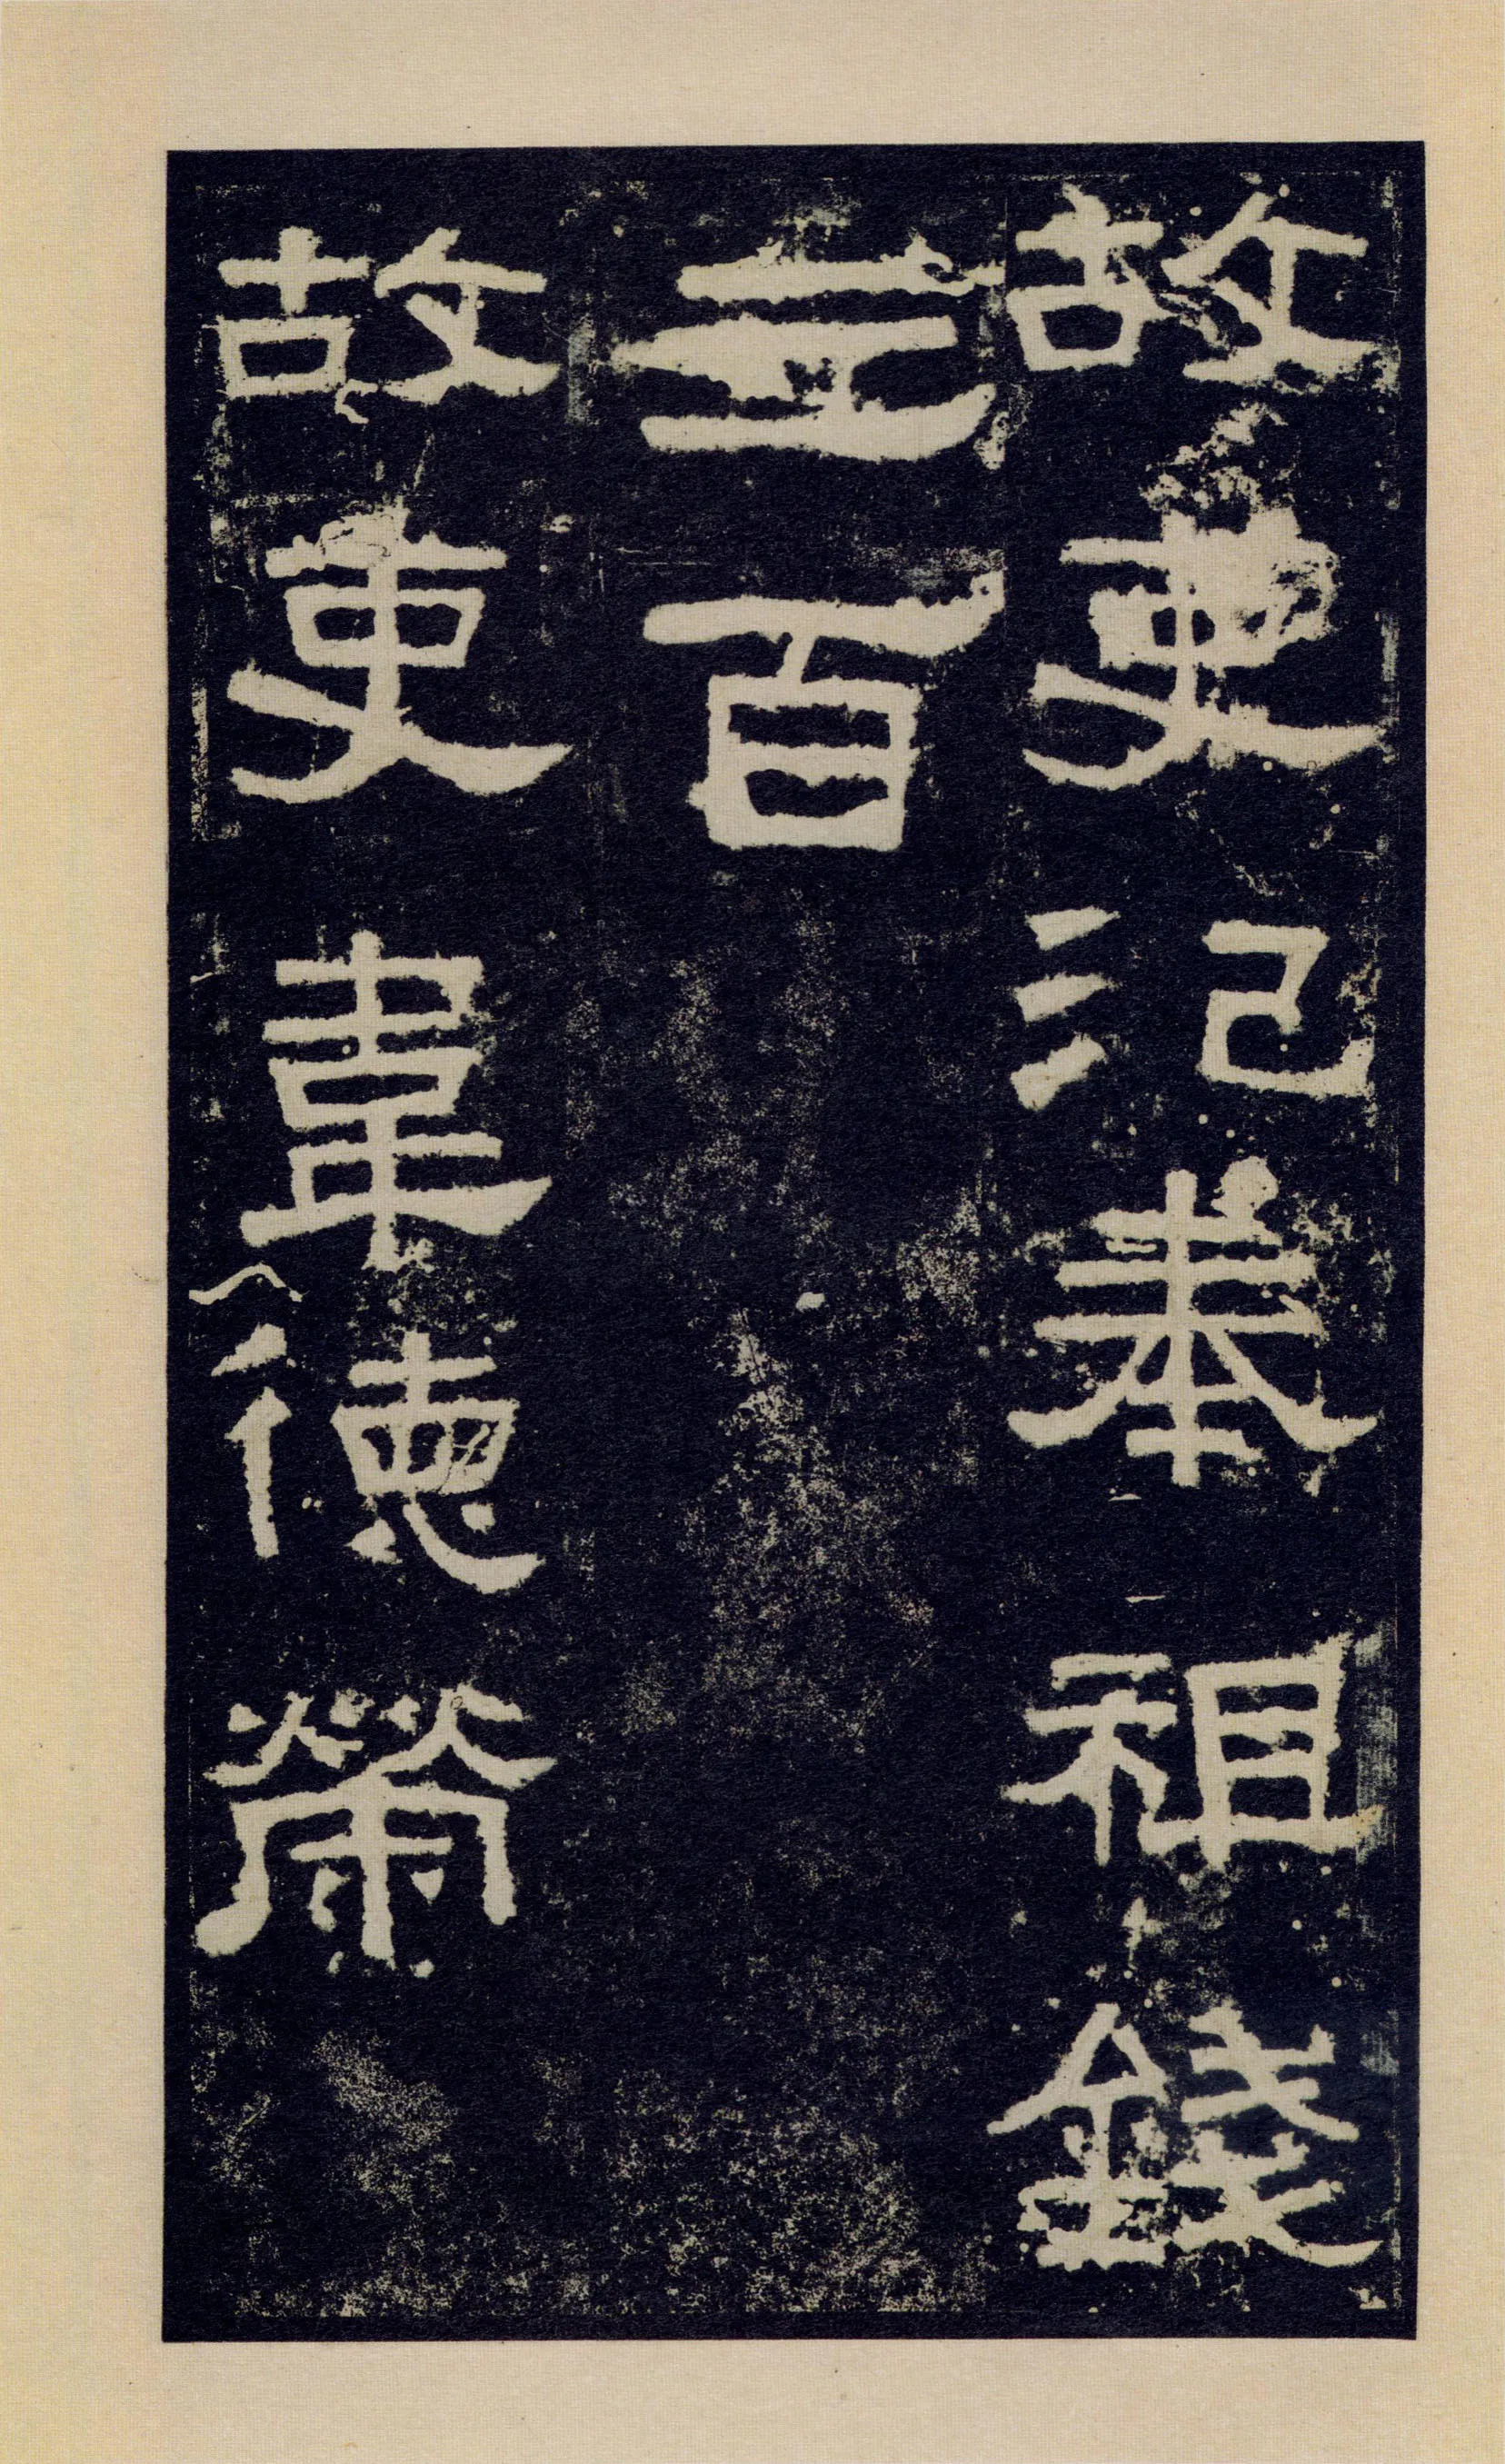 故吏氾奉祖錢
三百
故吏韋德榮